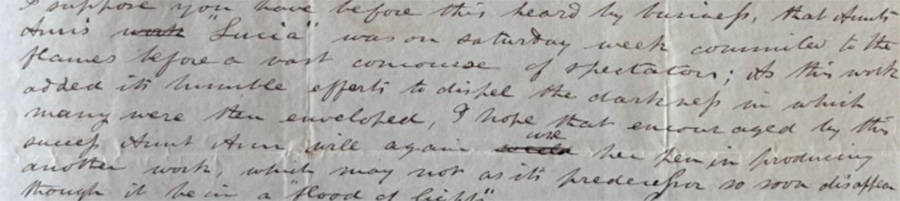 I suppose you have before this heard by business, that Aunt
Ann's work "Lucia" was on saturday week commited to the
flames before a vast concourse of spectators; As this work
added its humble efforts to dispel the darkness in which
many were then enveloped, I hope that encouraged by this
success Aunt Ann will again use her pen in producing
another work, which may not as its predecessor so soon disappear
though it be in a "flood of light"